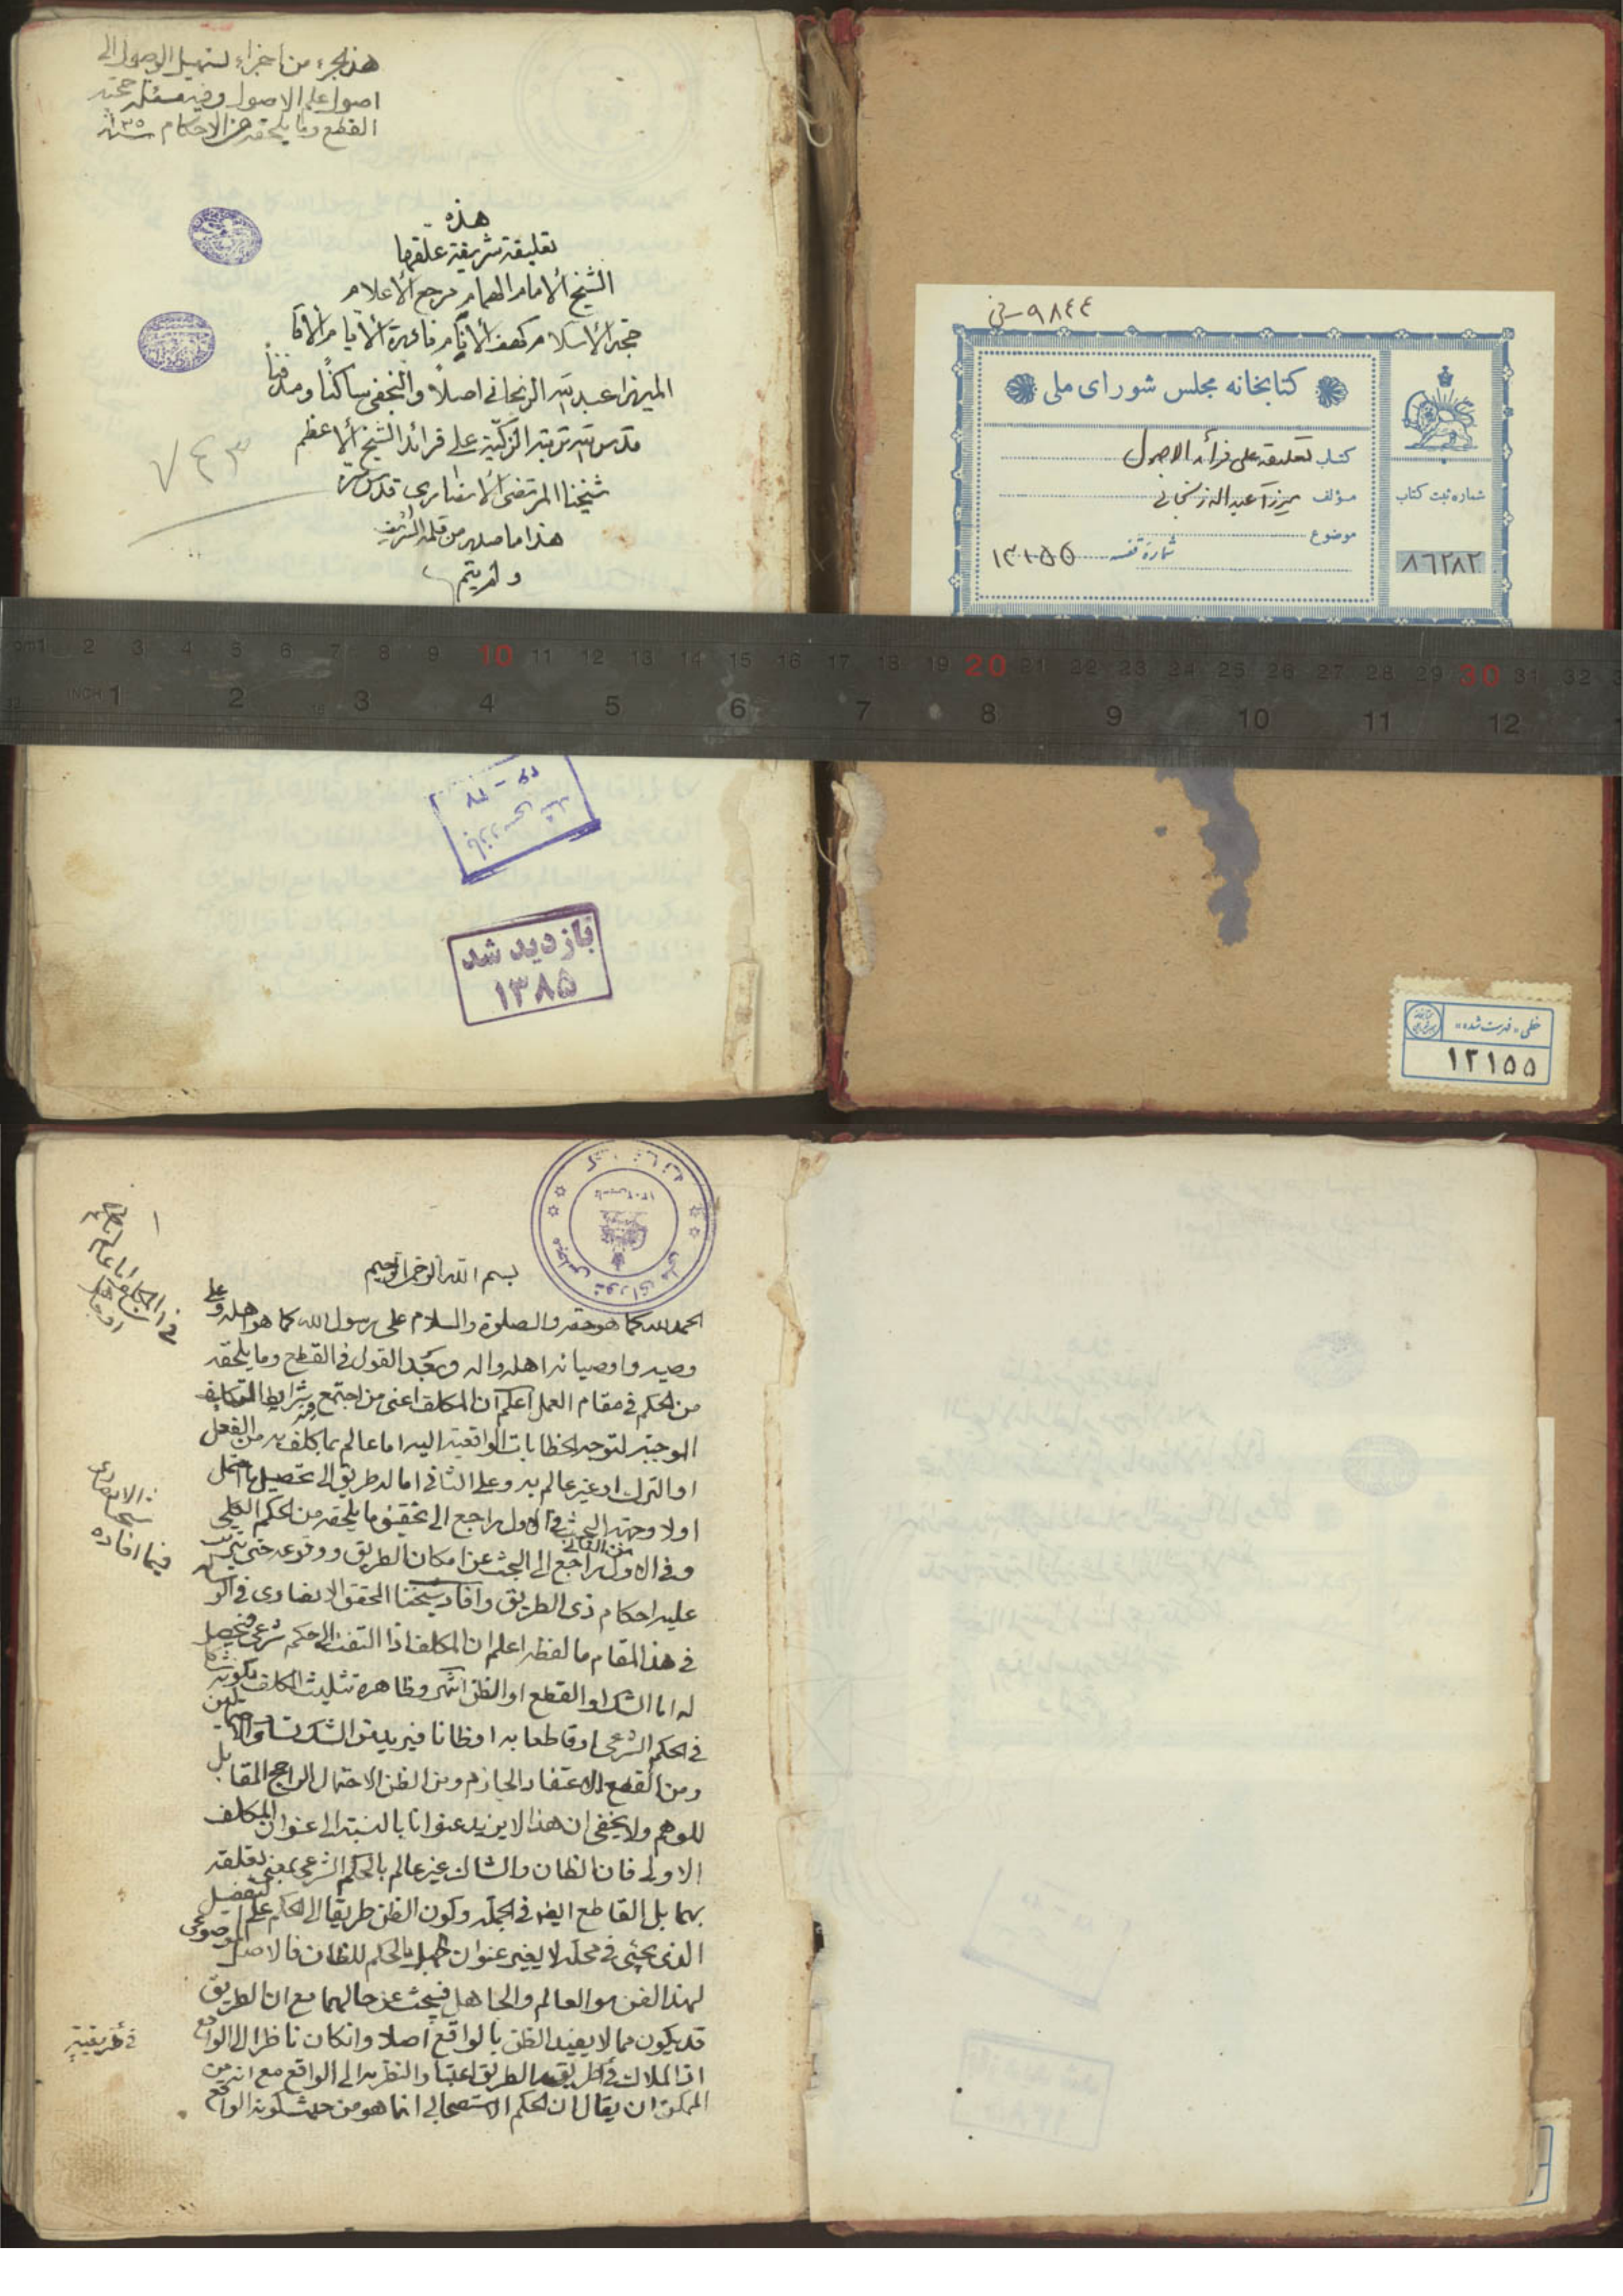 هذا جزء من اجزاء تسهيل الوصول الى
اصول علم الاصول وفيه مسئلة حجية
القطع وما يلحقه من الاحكام
هذه
تعليقة شريفة علّقها
الشيخ الأمام الهمام مرجع الأعلام
حجة الأسلام كهف الأنام
الميرزا عبد الله الزنجاني اصلاً والنجفي ساكناً ومدفناً
قدس الله تربته الزكيّة على فرائد الشيخ الأعظم
شيخنا المرتضى الأنصاري قدس سره
هذا ما صدر من قلمه الشريف
ولم يتم
٧٤٣
بازدید شد
۱۳۸۵
٩٨٤٤
کتابخانه مجلس شورای ملی
کتاب تعلیقه علی فرائد الاصول
مؤلف میرزا عبدالله زنجانی
موضوع
شماره قفسه
شماره ثبت کتاب
٨٦٢٨٢
cm1 2 3 4 5 6 7 8 9 10 11 12 13 14 15 16 17 18 19 20 21 22 23 24 25 26 27 28 29 30 31 32
INCH 1 2 3 4 5 6 7 8 9 10 11 12
خطی «فهرست شده»
١٢١٥٥
بسم الله الرحمن الرحيم
الحمد لله كما هو حقه والصلوة والسلام على رسول الله كما هو اهله وعلى
وصيه واوصيائه اهله واله وبعد القول في القطع وما يلحقه
من الحكم في مقام العمل اعلم ان المكلف اعني من اجتمع فيه شرايط التكليف
الموجبة لتوجه الخطابات الواقعية اليه اما عالم بما كلف به من الفعل
او الترك او غير عالم به وعلى الثاني اما له طريق الى تحصيل ما احتمل
اولا وجهة البحث في الاول راجع الى تحقيق ما يلحقه من الحكم العقلي
وفي الاول من الثاني راجع الى البحث عن امكان الطريق ووقوعه حتى يترتب
عليه احكام ذي الطريق وافاد شيخنا المحقق الانصاري في الرسائل
في هذا المقام ما لفظه اعلم ان المكلف اذا التفت الى حكم شرعي فيحصل
له اما الشك او القطع او الظن انتهى وظاهره تثليث المكلف بكونه شاكا
في الحكم الشرعي او قاطعا به او ظانا فيريد من الشك تساوي الاحتمالين
ومن القطع الاعتقاد الجازم ومن الظن الاحتمال الراجح المقابل
للوهم ولا يخفى ان هذا لا يزيد عنوانا بالنسبة الى عنوان المكلف
الاولى فان الظان والشاك غير عالم بالحكم الشرعي بمعنى تعلقه
بهما بل القاطع ايضا في الجملة وكون الظن طريقا الى الحكم على التفصيل
الذي يجئ في محله لا يغير عنوان جهل بالحكم للظان فالاصل
لهذا الفن هو العالم والجاهل فيبحث عن حالهما مع ان الطريق
قد يكون مما لا يفيد الظن بالواقع اصلا وانكان ناظرا الى الواقع
اذ الملاك في طريقية الطريق اعتبار النظر به الى الواقع مع انه من
الممكن ان يقال ان الحكم الاستصحابي انما هو من حيث كونه الواقع
شيخنا الانصاري
فيما افاده
في طريقية